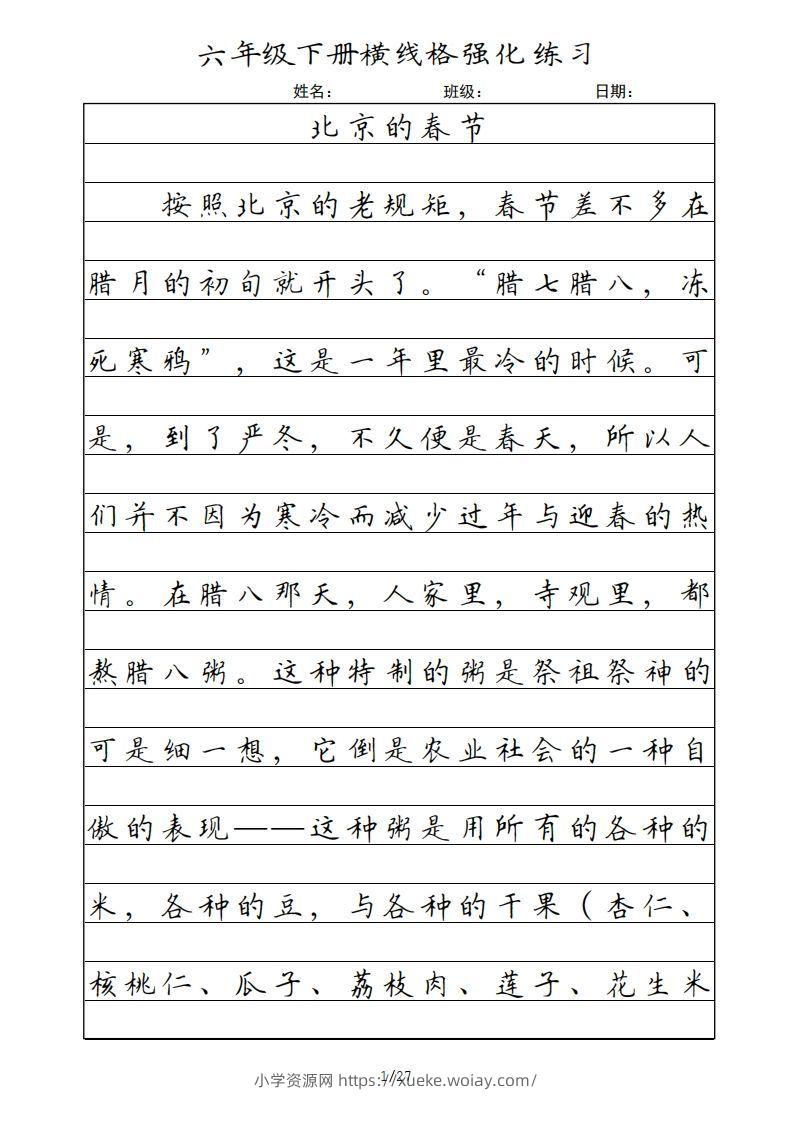 六年级下册横线格强化练习
姓名： 班级： 日期：
北京的春节
按照北京的老规矩，春节差不多在
腊月的初旬就开头了。“腊七腊八，冻
死寒鸦”，这是一年里最冷的时候。可
是，到了严冬，不久便是春天，所以人
们并不因为寒冷而减少过年与迎春的热
情。在腊八那天，人家里，寺观里，都
熬腊八粥。这种特制的粥是祭祖祭神的
可是细一想，它倒是农业社会的一种自
傲的表现——这种粥是用所有的各种的
米，各种的豆，与各种的干果（杏仁、
核桃仁、瓜子、荔枝肉、莲子、花生米
1/27
小学资源网 https://xueke.woiay.com/